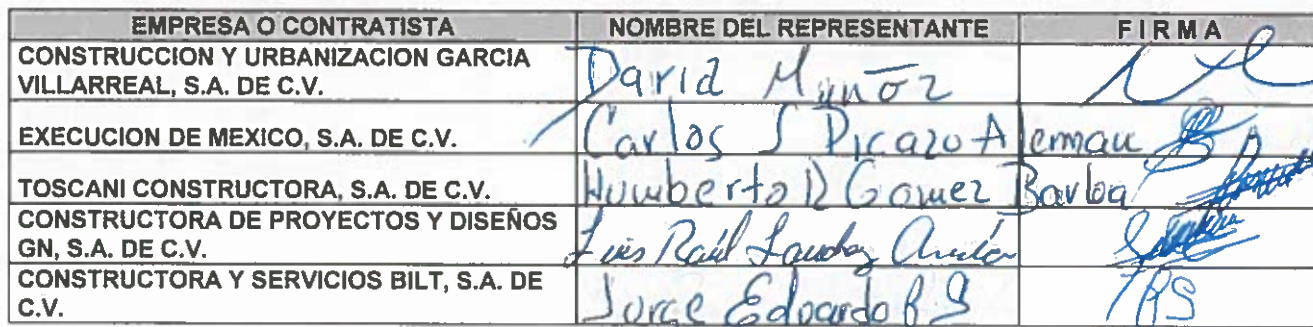 EMPRESA O CONTRATISTA NOMBRE DEL REPRESENTANTE FIRMA
CONSTRUCCION Y URBANIZACION GARCIA
VILLARREAL, S.A. DE C.V. David Muñoz
EXECUCION DE MEXICO, S.A. DE C.V. Carlos J Picazo Aleman
TOSCANI CONSTRUCTORA, S.A. DE C.V. Humberto R Gomez Barboa
CONSTRUCTORA DE PROYECTOS Y DISEÑOS
GN, S.A. DE C.V. Luis Raúl
CONSTRUCTORA Y SERVICIOS BILT, S.A. DE
C.V. Jorge Eduardo B S